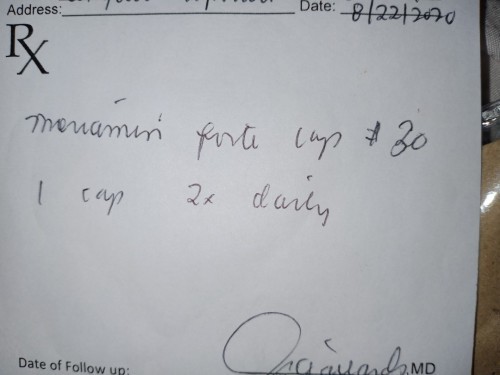 Address: Date: 8/22/2020
Rx
forte cap # 30
1 cap 2x daily
Date of Follow up: MD